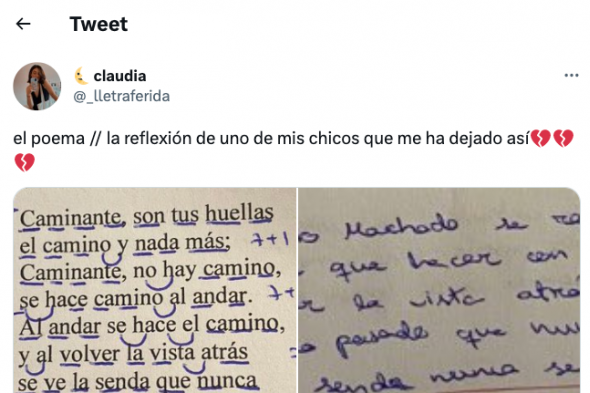 ← Tweet
🌜 claudia
@_lletraferida
el poema // la reflexión de uno de mis chicos que me ha dejado así💔💔
💔
Caminante, son tus huellas
el camino y nada más; 7+1
Caminante, no hay camino,
se hace camino al andar. 7+
Al andar se hace el camino,
y al volver la vista atrás
se ve la senda que nunca
Machado se
que hacer con
la vista atrá
pasado que nu
senda nunca se